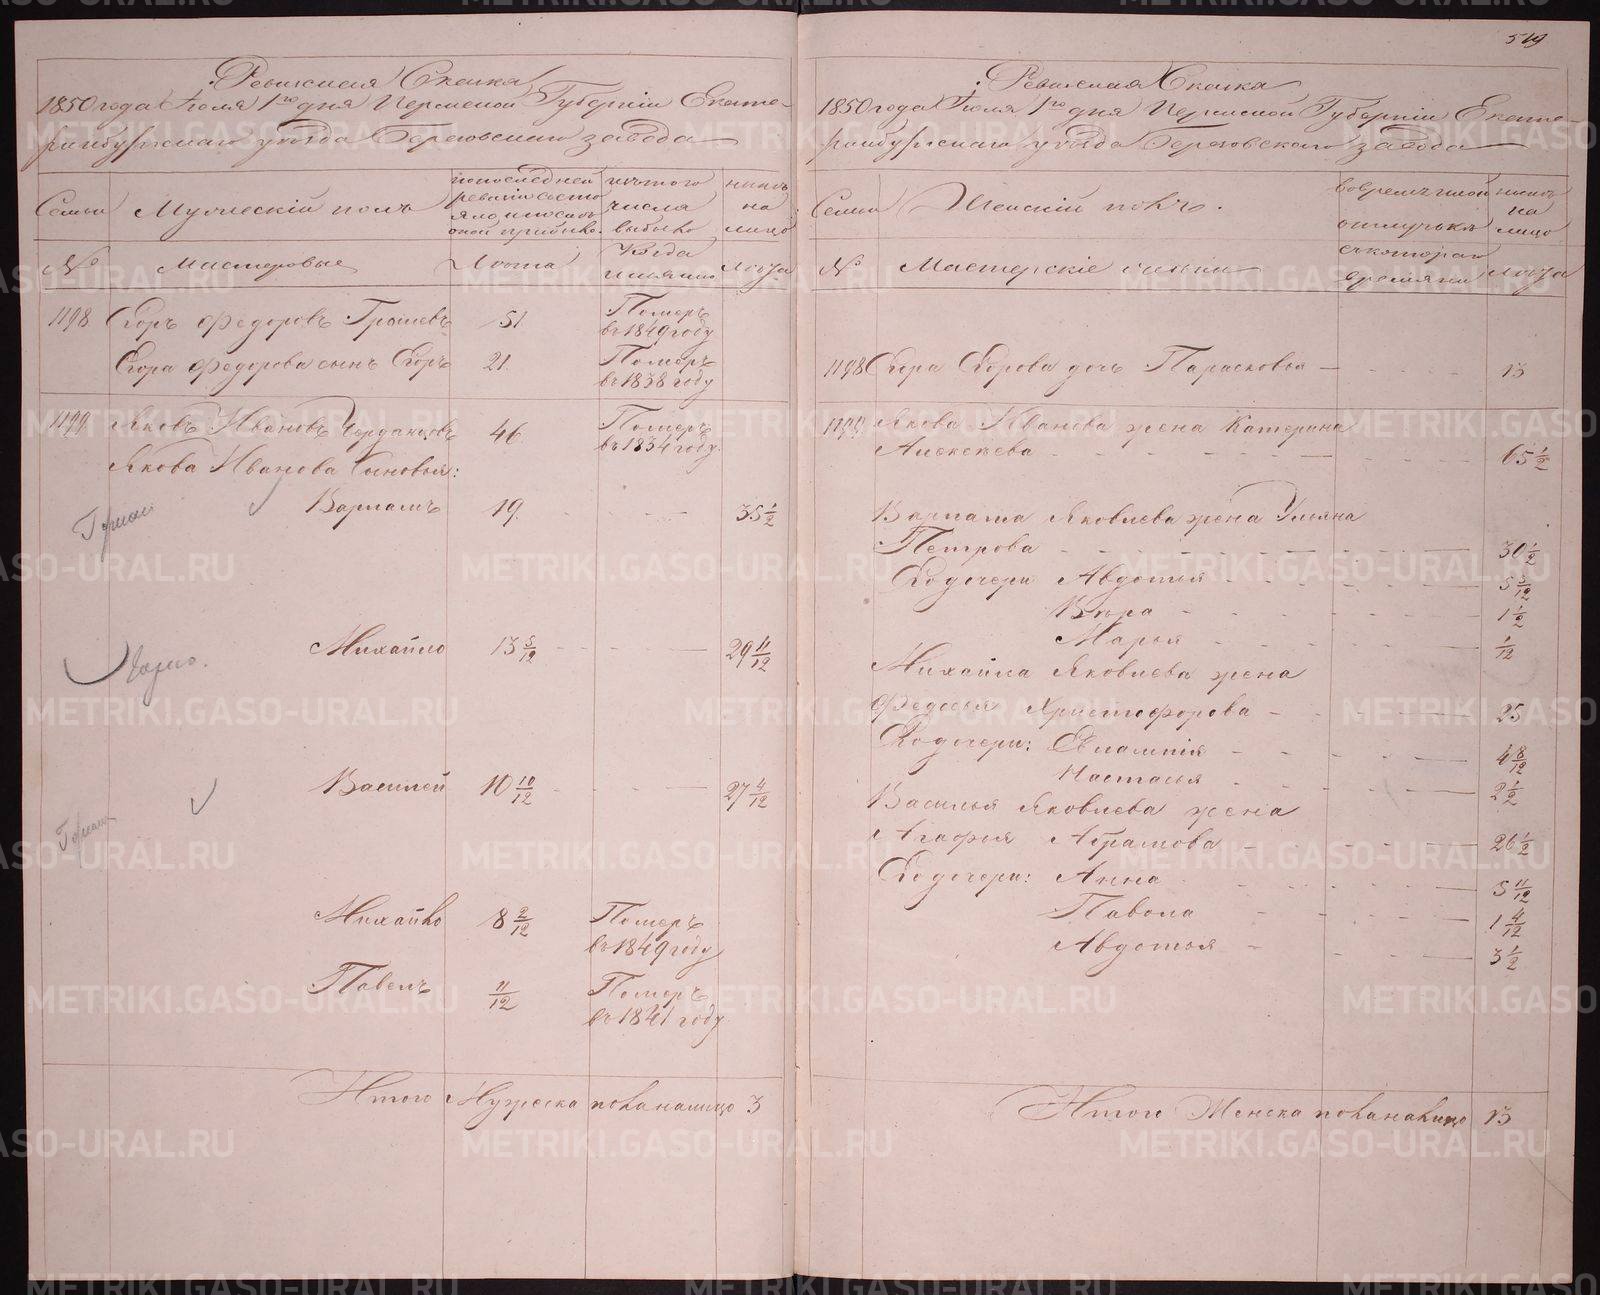 519
Ревижская Сказка
1850 года Іюля 1го дня Пермской Губерніи Екате-
ринбургскаго уѣзда Березовскаго завода
Семьи
Мужескій полъ
попоследней
ревизіи состо
яло, и послѣ
оной прибыло.
изътого
числа
выбыло
нынѣ
на
лицо
№
Мастеровые
Лѣта
Когда
имянно
Лѣта
1198
Егоръ Федоровъ
51
Померъ
въ 1849 году
Егора Федорова сынъ Егоръ
21.
Померъ
въ 1838 году
1199
Яковъ Ивановъ
46
Померъ
въ 1834 году.
Якова Иванова Сыновья:
Варламъ
19.
35 1/2
Михайло
13 5/12
29 11/12
Василей
10 10/12
27 4/12
Михайло
8 2/12
Померъ
въ 1849 году
Павелъ
11/12
Померъ
въ 1841 году
Итого Мужеска пола налицо 3
Ревижская Сказка
1850 года Іюля 1го дня Пермской Губерніи Екате-
ринбургскаго уѣзда Березовскаго завода
Семьи
Женскій полъ.
вовременной
отлучкѣ
нынѣ
на
лицо
№
Мастерскіе
съкотораго
времяни
Лѣта
1198 Егора Егорова дочь Парасковья
13
1199 Якова Иванова жена Катерина
Алексѣева
65 1/2
Варлама Яковлева жена Ульяна
Петрова
30 1/2
Его дочери Авдотья
5 5/12
Вѣра
1 1/2
Марья
1/12
Михайла Яковлева жена
Федосья Христофорова
25
Его дочери: Евлампія
4 8/12
Настасья
2 1/2
Василья Яковлева жена
Агафья Абрамова
26 1/2
Его дочери: Анна
5 11/12
Павола
1 4/12
Авдотья
3 1/2
Итого Женска пола налицо 13
METRIKI.GASO-URAL.RU